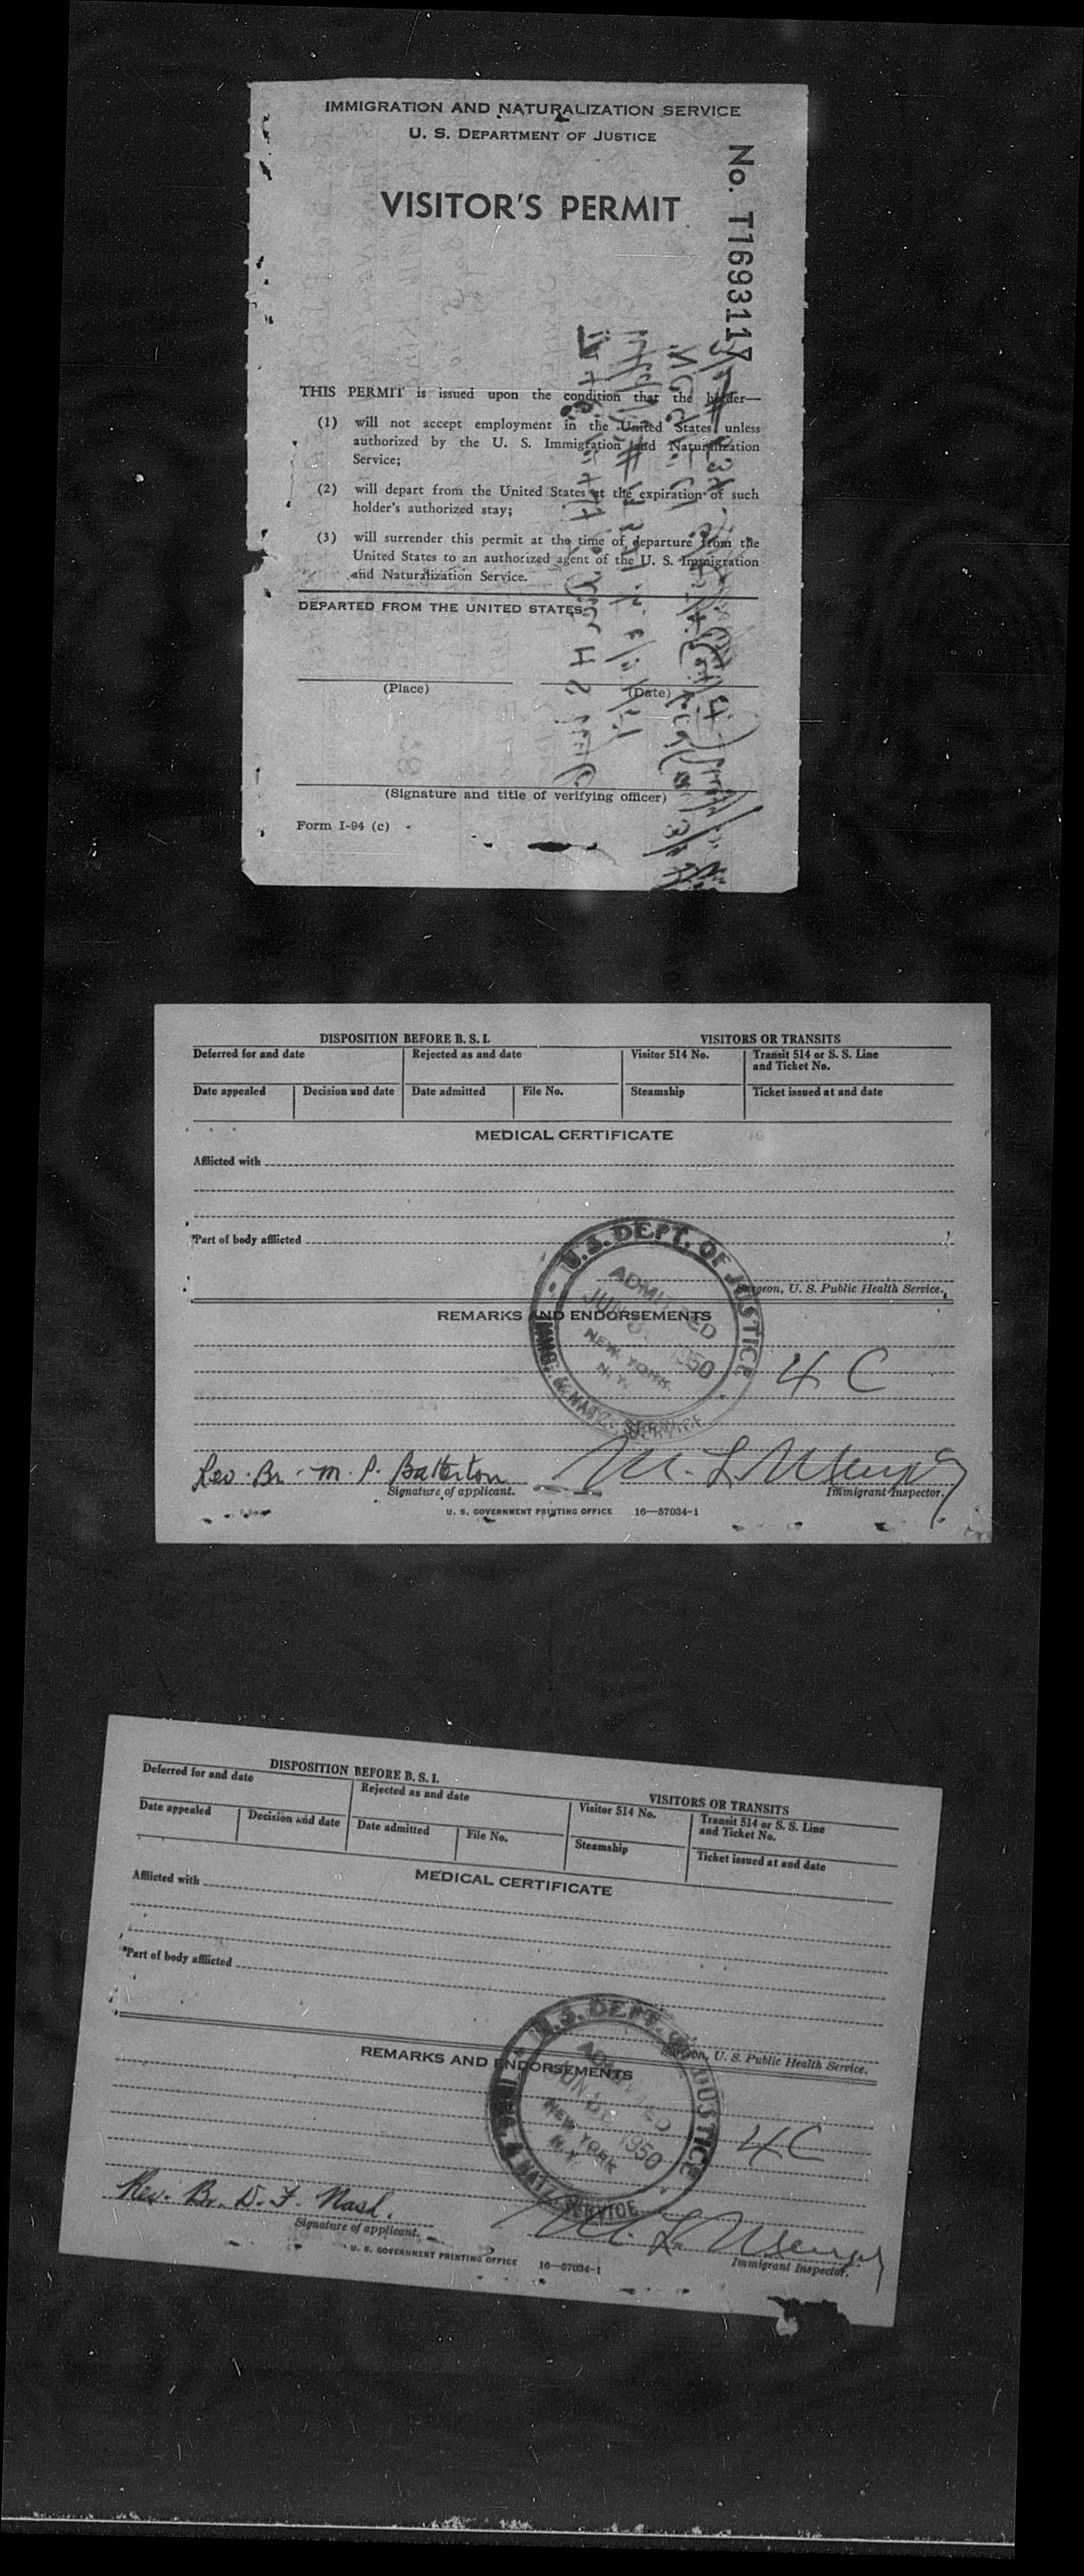 IMMIGRATION AND NATURALIZATION SERVICE
U. S. DEPARTMENT OF JUSTICE
VISITOR'S PERMIT
No. T1693117
THIS PERMIT is issued upon the condition that the holder—
(1) will not accept employment in the United States unless
authorized by the U. S. Immigration and Naturalization
Service;
(2) will depart from the United States at the expiration of such
holder's authorized stay;
(3) will surrender this permit at the time of departure from the
United States to an authorized agent of the U. S. Immigration
and Naturalization Service.
DEPARTED FROM THE UNITED STATES:
(Place) (Date)
(Signature and title of verifying officer)
Form I-94 (c)
DISPOSITION BEFORE B. S. I. VISITORS OR TRANSITS
Deferred for and date Rejected as and date Visitor 514 No. Transit 514 or S. S. Line
and Ticket No.
Date appealed Decision and date Date admitted File No. Steamship Ticket issued at and date
MEDICAL CERTIFICATE
Afflicted with
Part of body afflicted
Surgeon, U. S. Public Health Service.
REMARKS AND ENDORSEMENTS
U.S. DEPT. OF JUSTICE
ADMITTED
JUN 1950
NEW YORK
N.Y.
IMMG. & NATZ. SERVICE
4 C
Rev. Br. M. P. Batterton
Signature of applicant. Immigrant Inspector.
U. S. GOVERNMENT PRINTING OFFICE 16—57034-1
DISPOSITION BEFORE B. S. I. VISITORS OR TRANSITS
Deferred for and date Rejected as and date Visitor 514 No. Transit 514 or S. S. Line
and Ticket No.
Date appealed Decision and date Date admitted File No. Steamship Ticket issued at and date
MEDICAL CERTIFICATE
Afflicted with
*Part of body afflicted
Surgeon, U. S. Public Health Service.
REMARKS AND ENDORSEMENTS
U.S. DEPT. OF JUSTICE
ADMITTED
JUN 1950
NEW YORK
N.Y.
IMMG. & NATZ. SERVICE
4C
Rev. Br. D. F. Nash.
Signature of applicant. Immigrant Inspector.
U. S. GOVERNMENT PRINTING OFFICE 16—57034-1